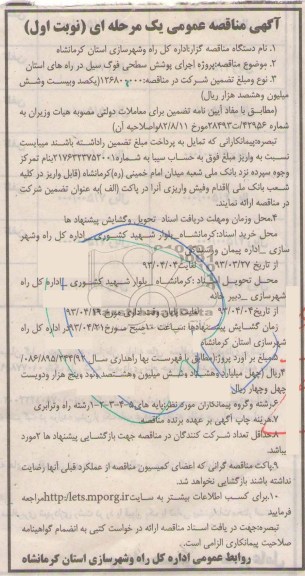 آگهی مناقصه عمومی یک مرحله ای (نوبت اول)
۱. نام دستگاه مناقصه گزار:اداره کل راه وشهرسازی استان کرمانشاه
۲. موضوع مناقصه:پروژه اجرای پوشش سطحی فوگ سیل در راه های استان
۳. نوع ومبلغ تضمین شرکت در مناقصه: (یکصد وبیست وشش
میلیون وهشصد هزار ریال)
(مطابق با مفاد آیین نامه تضمین برای معاملات دولتی مصوبه هیات وزیران به
شماره ۴۲۹۵۶/ت۲۸۴۹۳مورخ ۸۲/۸/۱۱واصلاحیه آن)
تبصره:پیمانکارانی که تمایل به پرداخت مبلغ تضمین راداشته باشند میبایست
نسبت به واریز مبلغ فوق به حساب سیبا به شماره ۲۱۷۶۴۳۲۷۵۲۰۰۱بنام تمرکز
وجوه سپرده نزد بانک ملی شعبه میدان امام خمینی (ره)کرمانشاه (قابل واریز در کلیه
شعب بانک ملی )اقدام وفیش واریزی آنرا در پاکت (الف )به عنوان تضمین شرکت
در مناقصه ارائه نمایند.
۴.محل وزمان ومهلت دریافت اسناد تحویل وگشایش پیشنهاد ها
محل خرید اسناد:کرمانشاه_ بلوار شهید کشوری _ اداره کل راه وشهر
سازی _ اداره پیمان و
از تاریخ ۹۳/۰۳/۲۷ لغایت ۹۳/۰۴/۰۴
محل تحویل اسناد :کرمانشاه _ بلوار شهید کشوری _ اداره کل راه
وشهرسازی _ دبیر خانه
از تاریخ ۹۳/۰۴/۰۴ لغایت پایان وقت اداری مورخ ۹۳/۰۴/۱۹
زمان گشایش پیشنهادها :ساعت ۱۰صبح مورخ ۹۳/۰۴/۲۱در اداره کل راه
وشهرسازی استان کرمانشاه
۵.مبلغ بر آورد پروژه(مطابق با فهرست بها راهداری سال
(چهل میلیارد وهشتاد وشش میلیون وهشتصد ونود وپنج هزار ودویست
چهل وچهار ریال
۶.رشته وگروه پیمانکاران مورد نظر:پایه های۵-۴-۳-۲-۱رشته راه وترابری
۷.هزینه چاپ آگهی بر عهده برنده مناقصه
۸.حداقل تعداد شرکت کنندگان در مناقصه جهت بازگشایی پیشنهاد ها ۲مورد
یباشد.
۹.پاکت مناقصه گرانی که اعضای کمیسیون مناقصه از عملکرد قبلی آنها رضایت
نداشته باشند بازگشایی نخواهد شد.
۱۰.برای کسب اطلاعات بیشتر به سایت http:/iets.mporg.irمراجعه
فرمایید
تبصره:جهت در یافت اسناد مناقصه ارائه در خواست کتبی به انضمام گواهینامه
صلاحیت پیمانکاری الزامی است.
روابط عمومی اداره کل راه وشهرسازی استان کرمانشاه